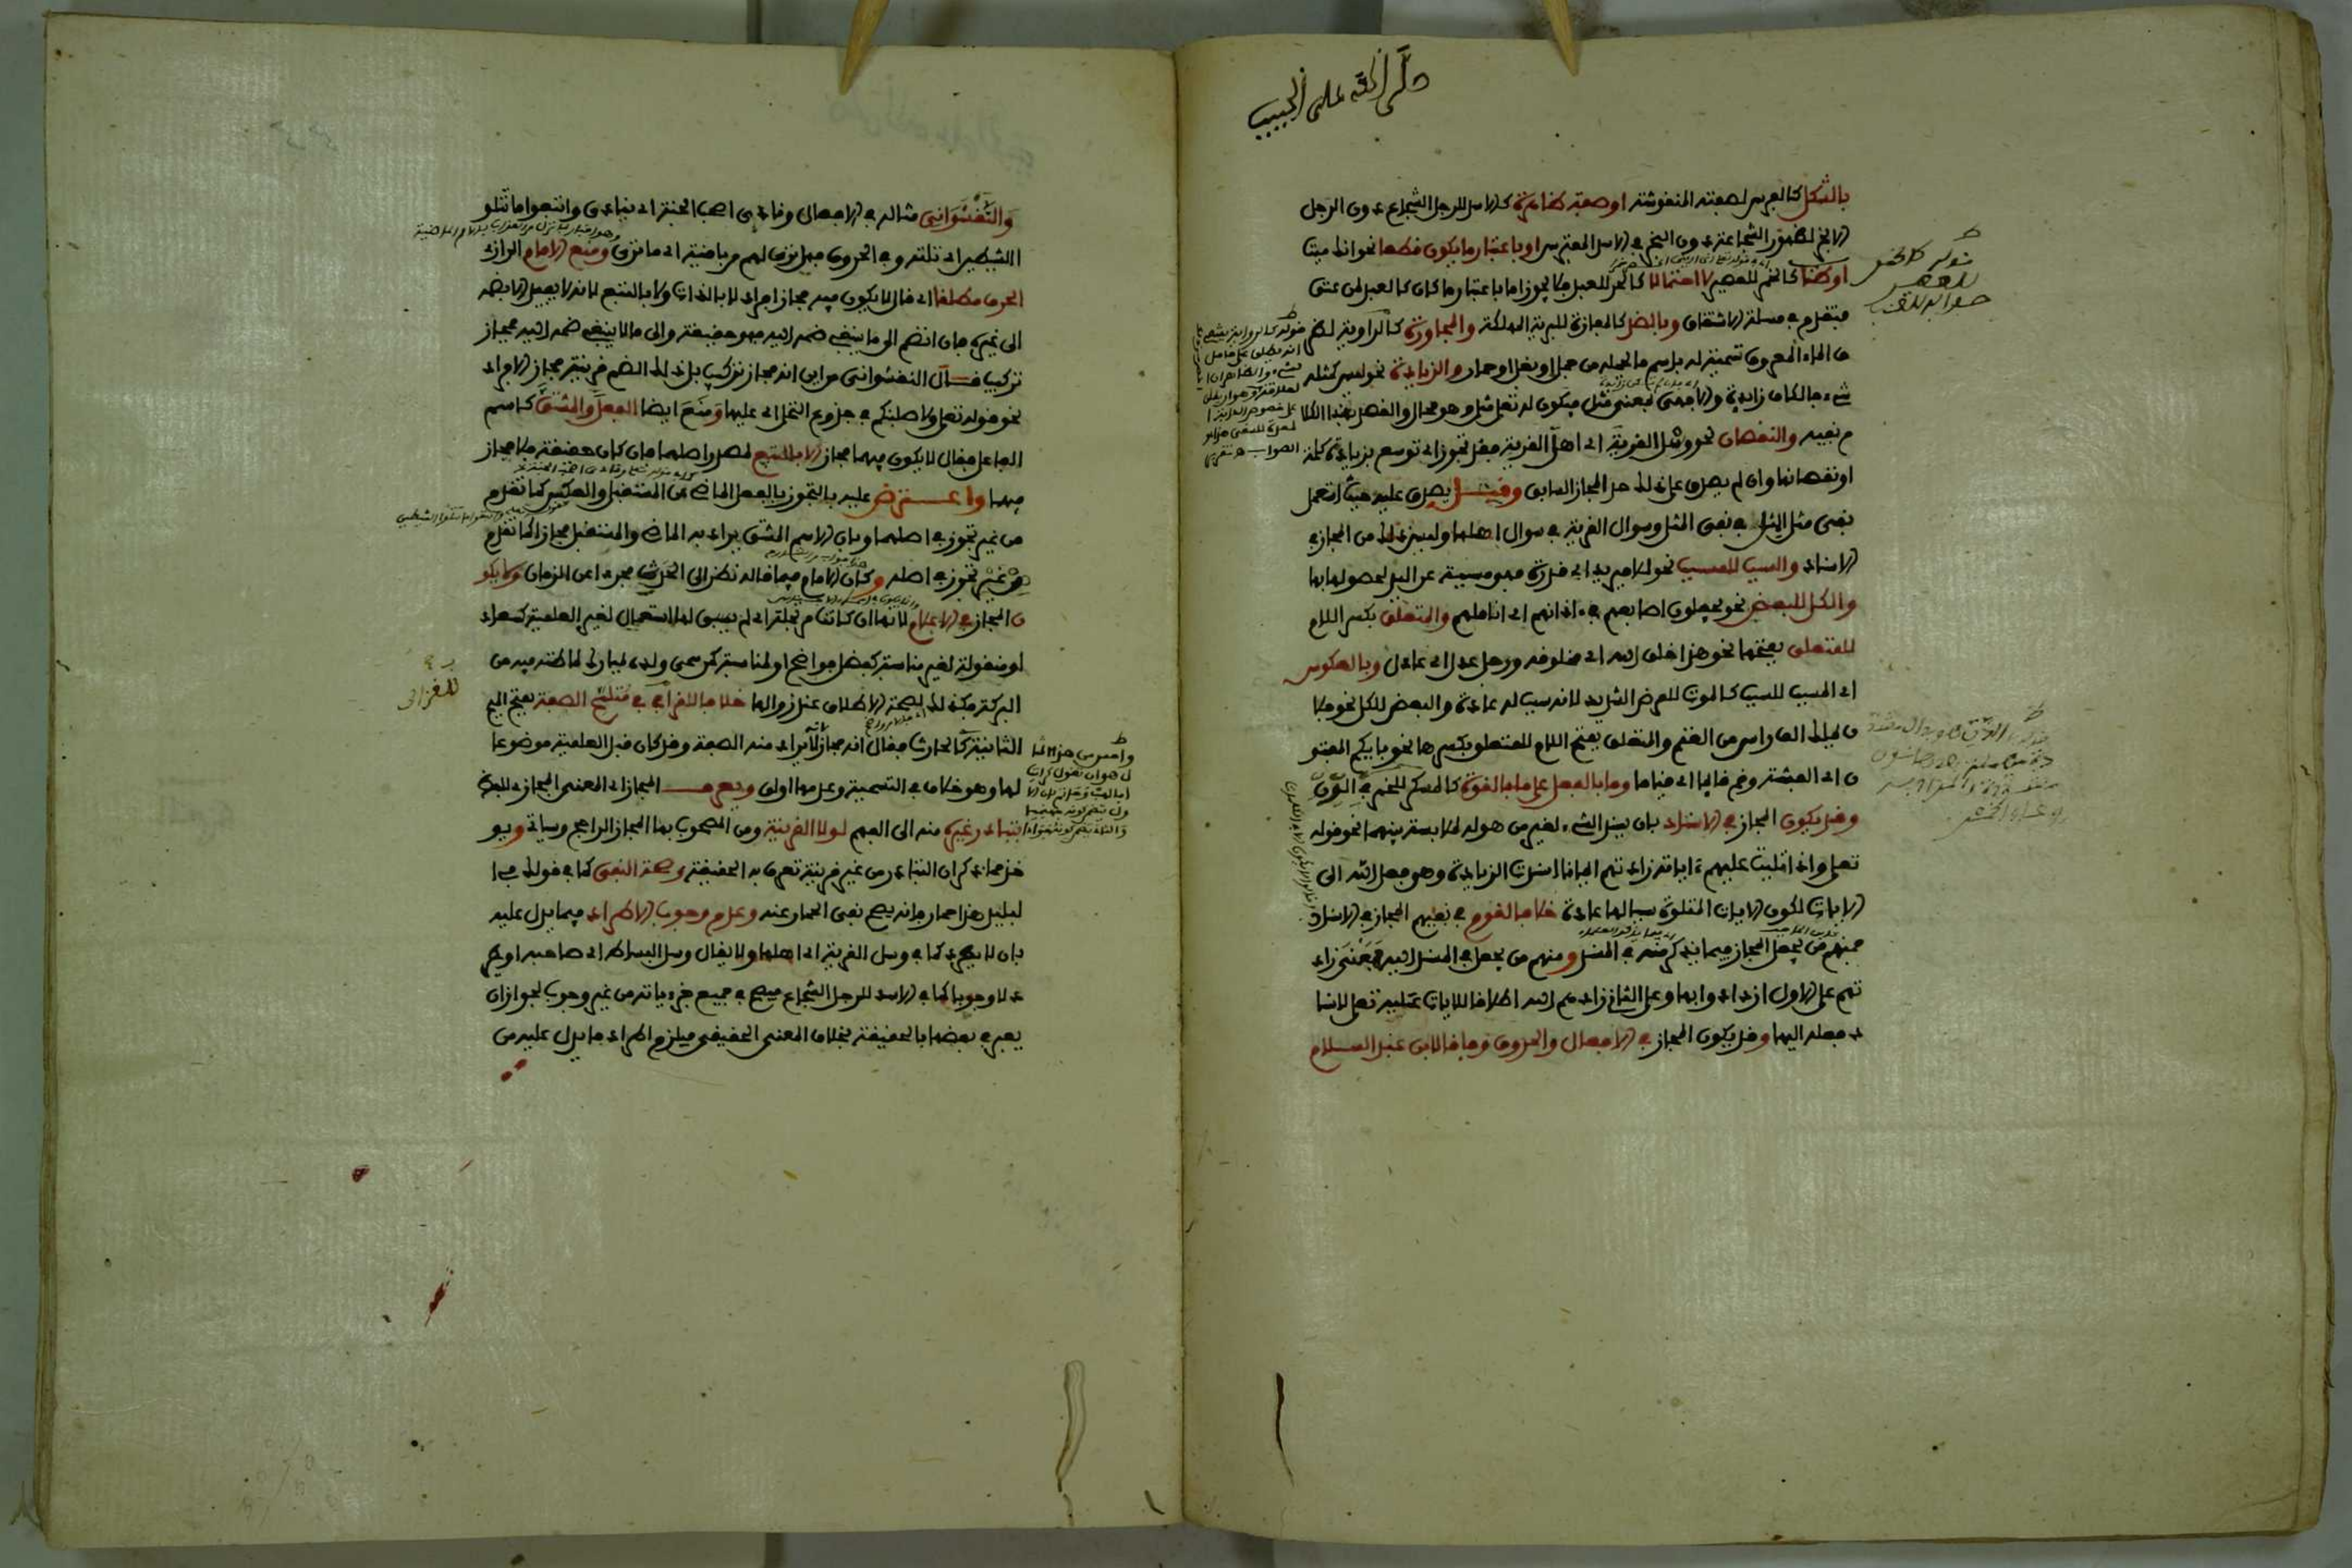 صلى الله على الحبيب
بالشكل كالفرس لصورته المنقوشة او صفة ظاهرة كالاسد للرجل الشجاع دون الرجل
الابخر لظهور الشجاعة دون البخر في الاسد المفترس او باعتبار ما يكون قطعا نحو انك ميت
او ظنا كالخمر للعصير لا احتمالا كالحر للعبد فلا يجوز اما باعتبار ما كان كالعبد لمن عتق
فتقدم في مسئلة الاشتقاق وبالضد كالمفازة للبرية المهلكة والمجاورة كالراوية لظر
ف الماء المعروف تسمية له باسم ما يحمله من جمل او بغل او حمار والزيادة نحو ليس كمثله
شيء فالكاف زايدة والا فهي بمعنى مثل فيكون له تعلى مثل وهو محال والقصد بهذا الكلا
م نفيه والنقصان نحو وسئل القرية اي اهل القرية فقد تجوز اي توسع بزيادة كلمة
او نقصانها وان لم يصدق على ذلك حد المجاز السابق وقيل يصدق عليه حيث استعمل
نفي مثل المثل في نفي المثل وسوال القرية في سوال اهلها وليس ذلك من المجاز في
الاسناد والسبب للمسبب نحو للامير يد اي قدرة فهي مسببة عن اليد لحصولها بها
والكل للبعض نحو يجعلون اصابعهم في ءاذانهم اي اناملهم والمتعلق بكسر اللام
للمتعلق بفتحها نحو هذا خلق الله اي مخلوقه ورجل عدل اي عادل وبالعكوس
اي المسبب للسبب كالموت للمرض الشديد لانه سبب له عادة والبعض للكل نحو فلا
ن يملك الف راس من الغنم والمتعلق بفتح اللام للمتعلق بكسرها نحو بايكم المفتو
ن اي الفتنة وقم قايما اي قياما وما بالفعل على ما بالقوة كالمسكر للخمر في الدن
وقد يكون المجاز في الاسناد بان يسند الشيء لغير من هو له لملابسة بينهما نحو قوله
تعلى واذا تليت عليهم ءاياته زادتهم ايمانا اسندت الزيادة وهو فعل الله الى
الايات لكون الايات المتلوة سببا لها عادة خلافا لقوم في نفيهم المجاز في الاسناد
فمنهم من يجعل المجاز فيما يذكر منه في المسند ومنهم من يجعل في المسند اليه فمعنى زاد
تهم على الاول ازدادوا بها وعلى الثاني زادهم الله اطلاقا للايات عليه تعلى لاسنا
د فعله اليها وقد يكون المجاز في الافعال والحروف وفاقا لابن عبد السلام
قوله كالخمر
للعصير
صوابه للعنب
والنقشواني مثاله في الافعال ونادى اصحاب الجنة اي ينادي واتبعوا ما تتلو
الشيطين اي تلته وفي الحروف فهل ترى لهم من باقية اي ما ترى ومنع الامام الرازي
الحرف مطلقا اي قال لا يكون فيه مجاز افراد لا بالذات ولا بالتبع لانه لا يفيد الا بضمه
الى غيره فان انضم الى ما ينبغي ضمه اليه فهو حقيقة والى ما لا ينبغي ضمه اليه فمجاز
تركيب قال النقشواني من اين انه مجاز تركيب بل ذلك الضم قرينة مجاز الافراد
نحو قوله تعلى ولاصلبنكم في جذوع النخل اي عليها ومنع ايضا الفعل والمشتق كاسم
الفاعل فقال لا يكون فيهما مجاز الا بالتبع للمصدر اصلهما فان كان حقيقة فلا مجاز
فيهما واعترض عليه بالتجوز بالفعل الماضي عن المستقبل والعكس كما تقدم
من غير تجوز في اصلهما وبان الاسم المشتق يراد به الماضي والمستقبل مجازا كما تقدم
من غير تجوز في اصله وكان الامام فيما قاله نظر الى الحدث مجردا عن الزمان ولا يكو
ن المجاز في الاعلام لانها ان كانت مرتجلة اي لم يسبق لها استعمال لغير العلمية كسعاد
او منقولة لغير مناسبة كفضل فواضح او لمناسبة كمن سمى ولده بمبارك لما ظنه فيه من
البركة فكذلك لصحة الاطلاق عند زوالها خلافا للغزالي في متلمح الصفة بفتح الميم
الثانية كالحارث فقال انه مجاز لانه لا يراد منه الصفة وقد كان قبل العلمية موضوعا
لها وهو خلاف في التسمية وعدمها اولى ويعرف المجاز اي المعنى المجازي للفظ
بتبادر غيره منه الى الفهم لولا القرينة ومن المصحوب بها المجاز الراجح وسياتي ويو
خذ مما ذكر ان التبادر من غير قرينة تعرف به الحقيقة وصحة النفي كما في قولك في ا
لبليد هذا حمار فانه يصح نفي الحمار عنه وعدم وجوب الاطراد فيما يدل عليه
بان لا يطرد كما في وسل القرية اي اهلها ولا يقال وسل البساط اي صاحبه او يطر
د لا وجوبا كما في الاسد للرجل الشجاع فيصح في جميع جزءياته من غير وجوب لجواز ان
يعبر في بعضها بالحقيقة بخلاف المعنى الحقيقي فيلزم اطراد ما يدل عليه من
للغزالي